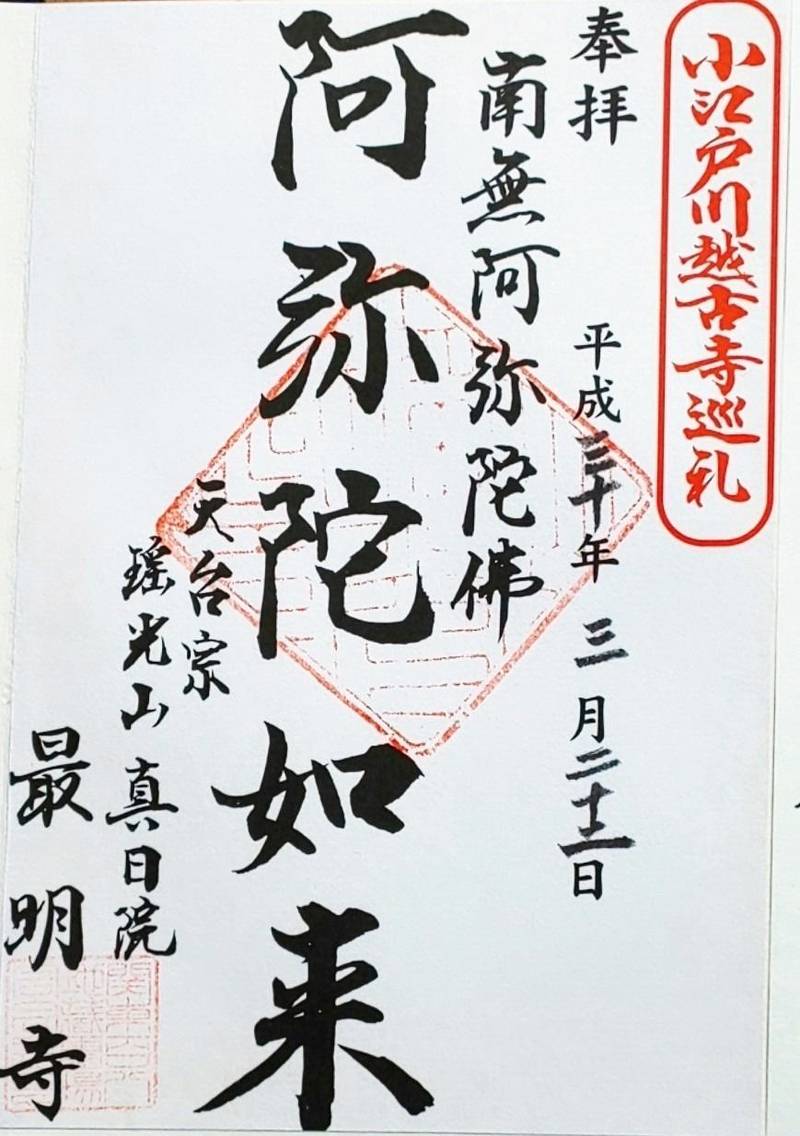 小江戸川越古寺巡礼
奉拝 平成三十年 三月二十二日
南無阿弥陀佛
阿弥陀如来
天台宗
瑶光山 真日院
最明寺